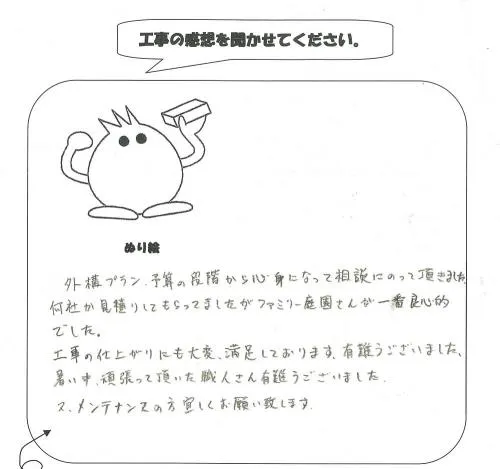 工事の感想を聞かせてください。
ぬり絵
外構プラン、予算の段階から心身になって相談にのって頂きました
何社か見積りしてもらってましたがファミリー庭園さんが一番良心的
でした。
工事の仕上がりにも大変、満足しております。有難うございました、
暑い中、頑張って頂いた職人さん有難うございました.
又、メンテナンスの方宜しくお願い致します.